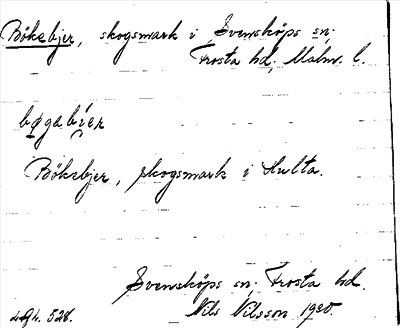 Böksbjer, skogsmark i Svensköps sn;
Frosta hd, Malm. l.
bøgabíer
Böksbjer, skogsmark i Hulta.
Svensköps sn. Frosta hd.
528. Nils Nilsson 1920.